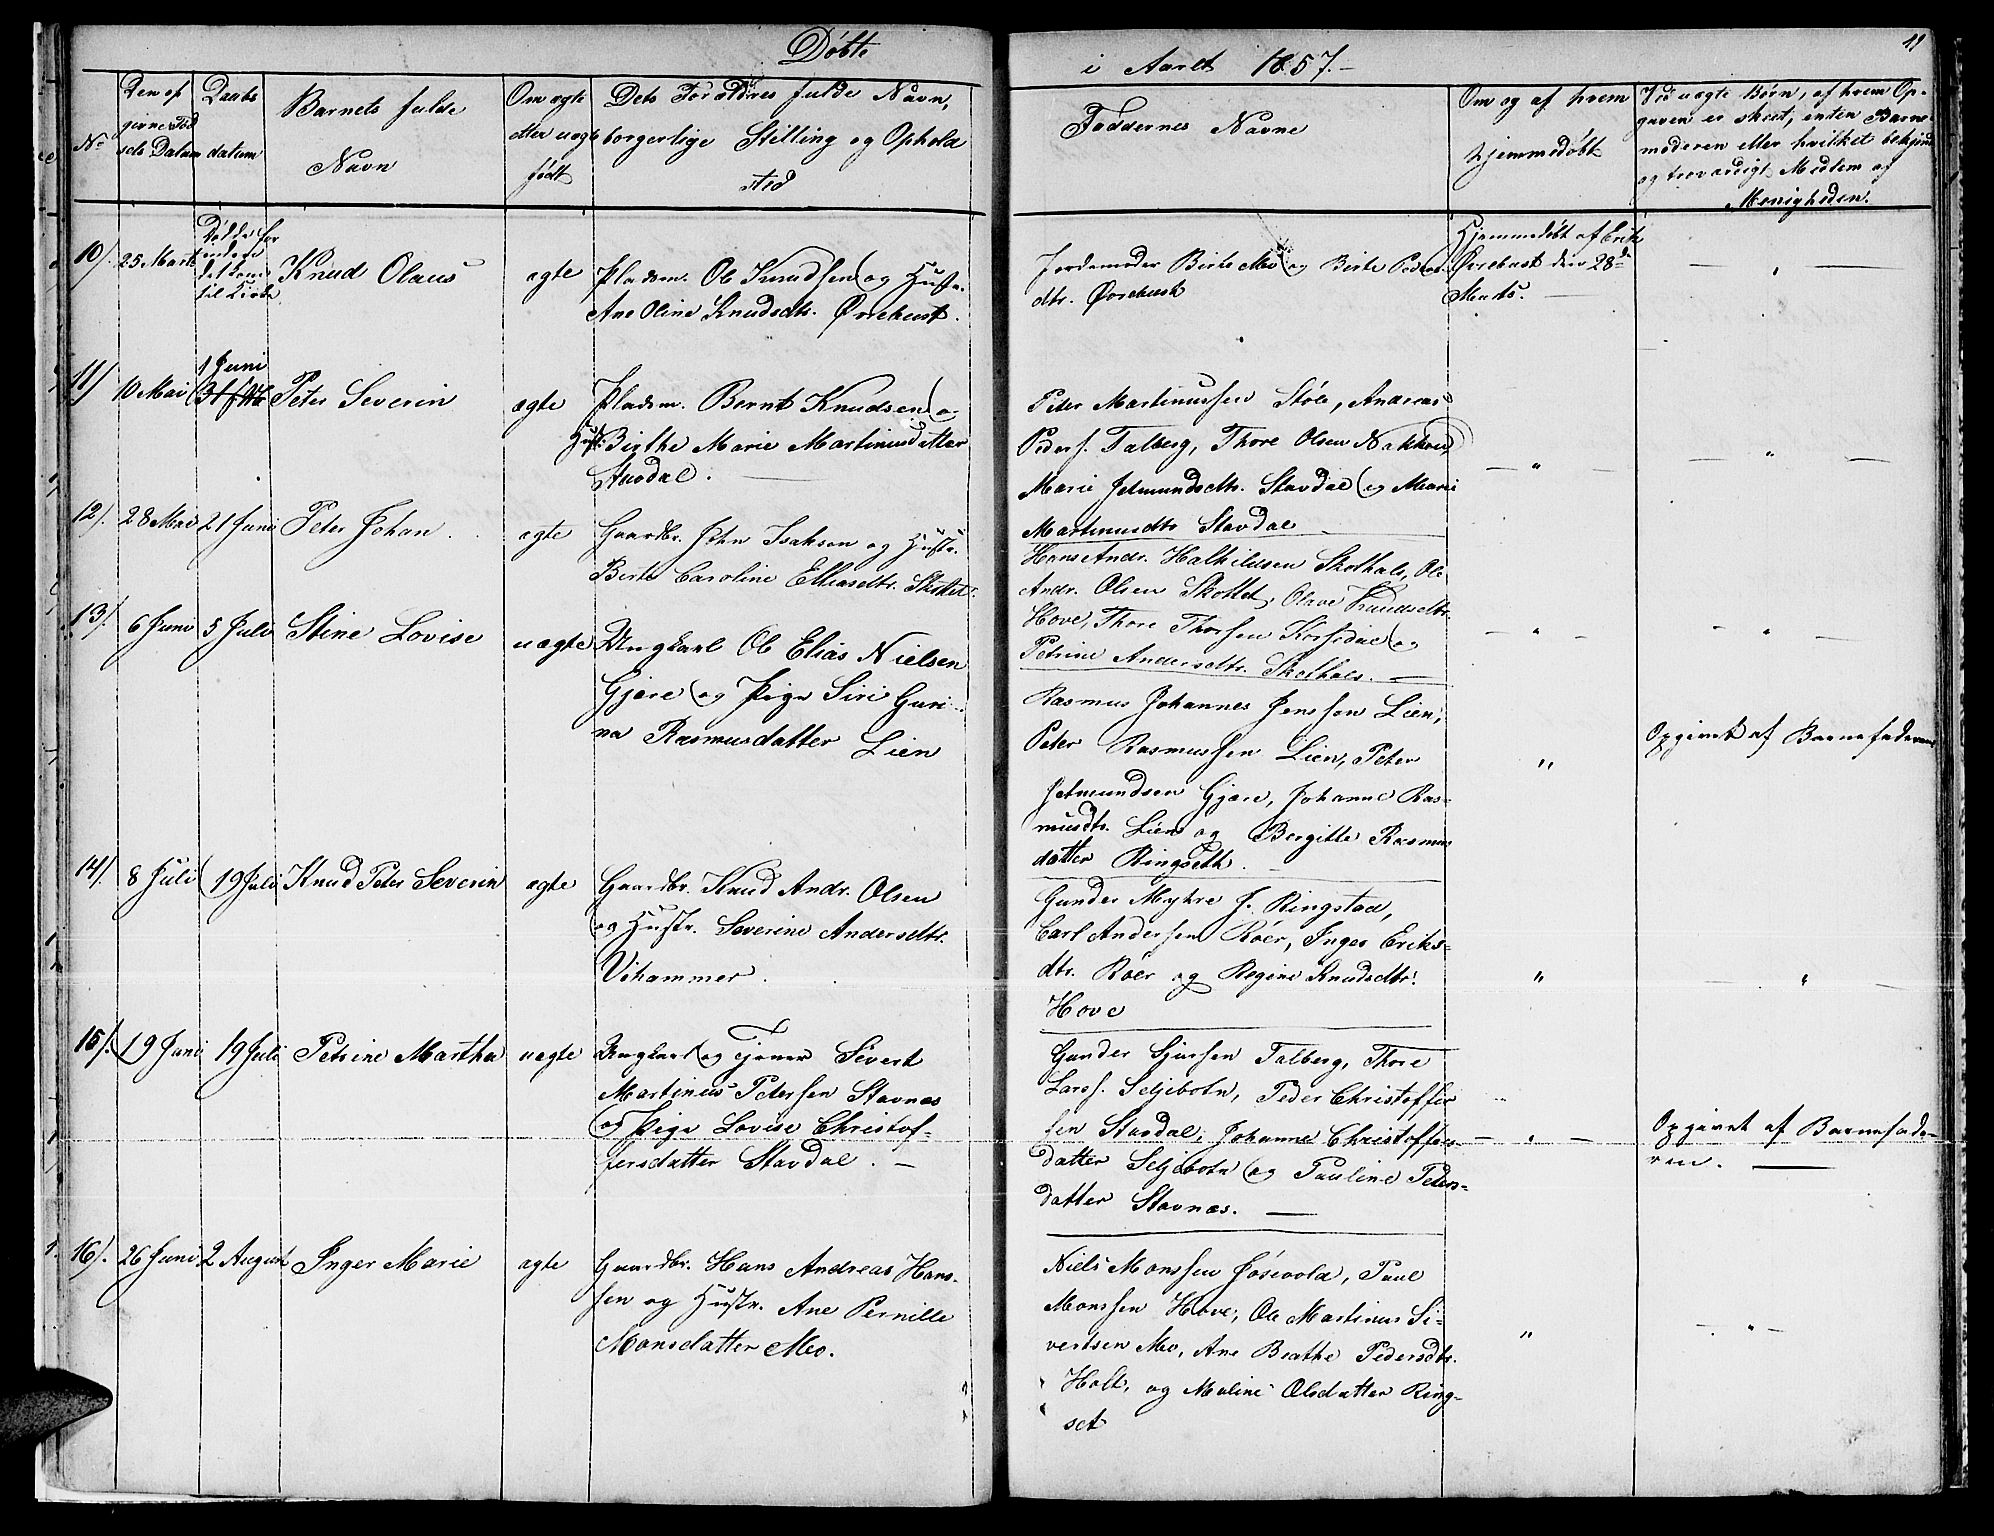 Døbte
i Aaret 1857.-
11
No
Den op
givne Fød
sels Datum
Daabs
datum
Barnets fulde
Navn
Om ægte
eller uægte
født
Dets Forældres fulde Navn,
borgerlige Stilling og Ophold
sted
Faddernes Navne
Om og af hvem
hjemmedøbt
Ved uægte Børn, af hvem Op-
gaven er skeet, enten Barne-
moderen eller hvilket bekjendt
og troværdigt Medlem af
Menigheden.
10/.
25 Marts
Døde for
indend
det kom
til Kirke
Knud Olaus
ægte
Pladsm. Ole Knudsen og Hustr.
Ane Oline Knudsdtr. Ørebust.
Jordemoder Birte Mo og Birte Peders-
dtr. Ørebust
Hjemmedøbt af Erik
Ørebust den 28de
Marts.
— " —
11/
10 Mai
1 Juni
Peter Severin
ægte
Pladsm. Bernt Knudsen og
Hustr. Birthe Marie Martinusdatter
Stavdal.
Peter Martinussen Støle, Andreas
Peders. Talberg, Thore Olsen Nakken,
Marie Jetmundsdtr. Stavdal og Marie
Martinusdtr Stavdal
— " —
— " —
12/.
28 Mai
21 Juni
Peter Johan
ægte
Gaardbr. John Isaksen og Hustr.
Birte Caroline Eliasdtr. Skottet.
Hans Andr. Halkildsen Skothals, Ole
Andr. Olsen Skottet, Olave Knudsdtr.
Hove, Thore Thorsen Korsdal og
Petrine Andersdtr. Skothals. —
— " —
— " —
13/.
6 Juni
5 Juli
Stine Lovise
uægte
Ungkarl Ole Elias Nielsen
Gjære og Pige Siri Guri-
na Rasmusdatter Lien
Rasmus Johannes Jenssen Lien,
Peter Rasmussen Lien, Peter
Jetmundsen Gjære, Johanne Ras-
musdtr. Lien og Bergitte Rasmus
datter Ringseth.
"
Opgivet af Barnefaderen
14/.
8 Juli
19 Juli
Knud Peter Severin
ægte
Gaardbr. Knud Andr. Olsen
og Hustr. Severine Andersdtr.
Vihammer.
Gunder Myhre f. Ringstad,
Carl Andersen Röer, Inger Eriks-
dtr. Röer og Regine Knudsdtr.
Hove
"
— " —
15/.
19 Juni
19 Juli
Petrine Martha
uægte
Ungkarl og Tjener Sivert
Martinus Petersen Stavnæs
og Pige Lovise Christof-
fersdatter Stavdal. —
Gunder Sjursen Talberg, Thore
Larss. Seljebotn, Peder Christoffer
sen Stavdal, Johanne Christoffers-
datter Seljebotn og Pauline Peters-
datter Stavnæs. —
— " —
Opgivet af Barnefade-
ren. —
16/.
26 Juni
2 August
Inger Marie
ægte
Gaardbr. Hans Andreas Hans-
sen og Hustr. Ane Pernille
Monsdatter Mo.
Niels Monssen Josevold, Paul
Monssen Hove, Ole Martinus Si-
vertsen Mo, Ane Beathe Pedersdtr.
Holt, og Maline Olsdatter Ring-
set
"
— " —